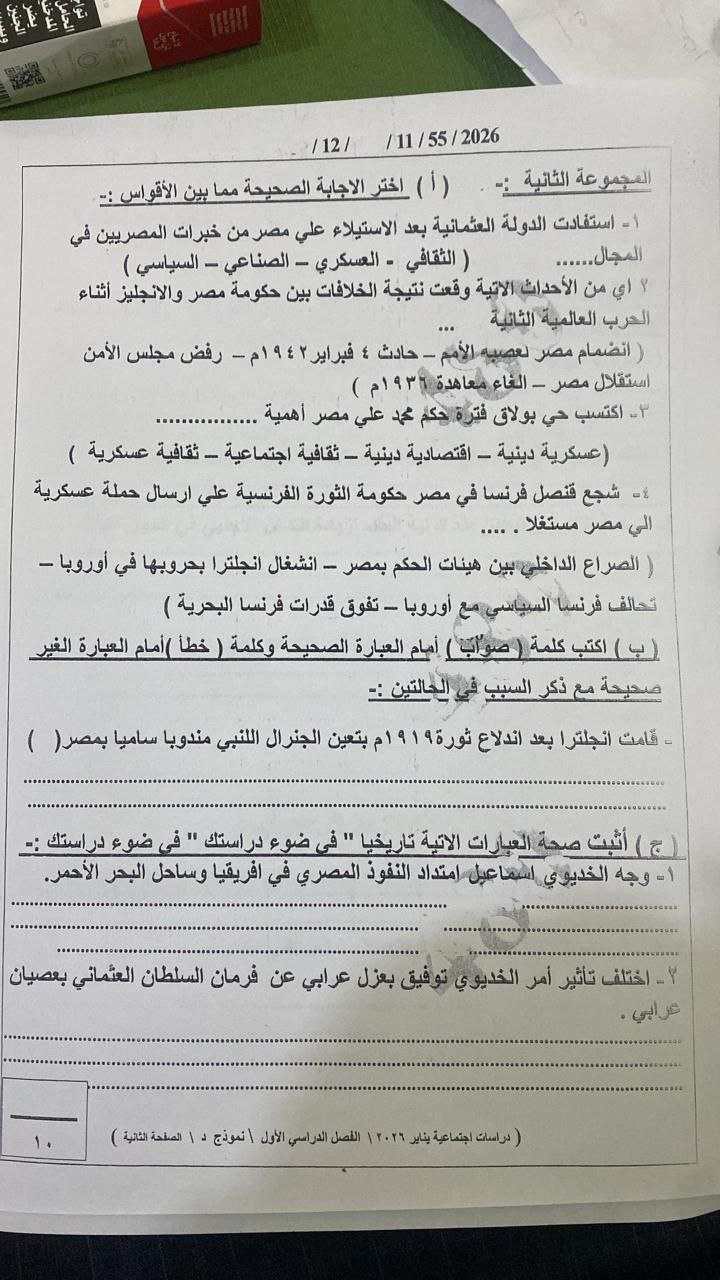 /12/ /11/55/2026
المجموعة الثانية :- ( أ ) اختر الاجابة الصحيحة مما بين الأقواس :-
١- استفادت الدولة العثمانية بعد الاستيلاء علي مصر من خبرات المصريين في
المجال...... ( الثقافي - العسكري – الصناعي – السياسي )
٢ اي من الأحداث الاتية وقعت نتيجة الخلافات بين حكومة مصر والانجليز أثناء
الحرب العالمية الثانية ...
( انضمام مصر لعصبه الأمم – حادث ٤ فبراير ١٩٤٢م – رفض مجلس الأمن
استقلال مصر – الغاء معاهدة ١٩٣٦م )
٣- اكتسب حي بولاق فترة حكم محمد علي مصر أهمية ................
(عسكرية دينية – اقتصادية دينية – ثقافية اجتماعية – ثقافية عسكرية )
٤- شجع قنصل فرنسا في مصر حكومة الثورة الفرنسية علي ارسال حملة عسكرية
الي مصر مستغلا . ....
( الصراع الداخلي بين هيئات الحكم بمصر – انشغال انجلترا بحروبها في أوروبا –
تحالف فرنسا السياسي مع أوروبا – تفوق قدرات فرنسا البحرية )
( ب ) اكتب كلمة ( صواب ) أمام العبارة الصحيحة وكلمة ( خطأ )أمام العبارة الغير
صحيحة مع ذكر السبب في الحالتين :-
- قامت انجلترا بعد اندلاع ثورة ١٩١٩م بتعين الجنرال اللنبي مندوبا ساميا بمصر( )
( ج ) أثبت صحة العبارات الاتية تاريخيا " في ضوء دراستك " في ضوء دراستك :-
١- وجه الخديوي اسماعيل امتداد النفوذ المصري في افريقيا وساحل البحر الأحمر.
٢- اختلف تأثير أمر الخديوي توفيق بعزل عرابي عن فرمان السلطان العثماني بعصيان
عرابي .
١٠
( دراسات اجتماعية يناير ٢٠٢٦ \ الفصل الدراسي الأول \ نموذج د \ الصفحة الثانية )